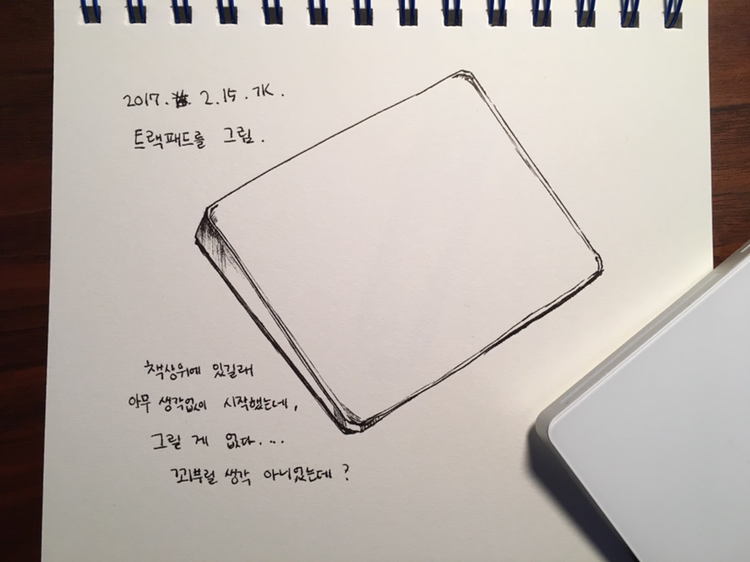 2017. 2. 15. JK.
트랙패드를 그림.
책상위에 있길래
아무 생각없이 시작했는데,
그릴 게 없다....
꾀부릴 생각 아니었는데?